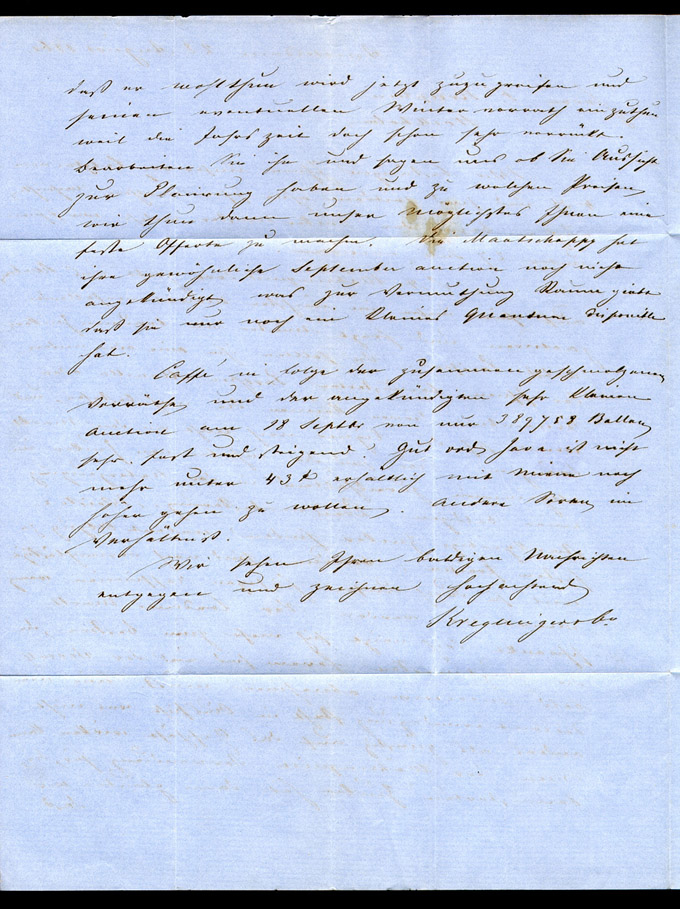 daß er wohlthun wird jetzt zuzugreifen und
seinen eventuellen Wintervorrath einzuthun
weil die Jahrszeit doch schon sehr vorrückt.
Bearbeiten Sie ihn und sagen uns ob Sie Aussicht
zur Placirung haben und zu welchen Preisen,
wir thun dann unser möglichstes Ihnen eine
feste Offerte zu machen. Die Maatschappy hat
ihre gewöhnliche September auction noch nicht
angekündigt was zur Vermuthung Raum giebt
daß sie nur noch ein kleines Quantum disponible
hat.
Caffé in folge der zusammengeschmolzenen
Vorräthe und der angekündigten sehr kleinen
Auction am 18 Septbr von nur 389758 Ballen
sehr fest und steigend. Gut ord Java ist nicht
mehr unter 43 erhältlich mit Miene noch
höher gehen zu wollen. Andere Sorten im
Verhältniß.
Wir sehen Ihren baldigen Nachrichten
entgegen und zeichnen hochachtend
Kreglinger & Co